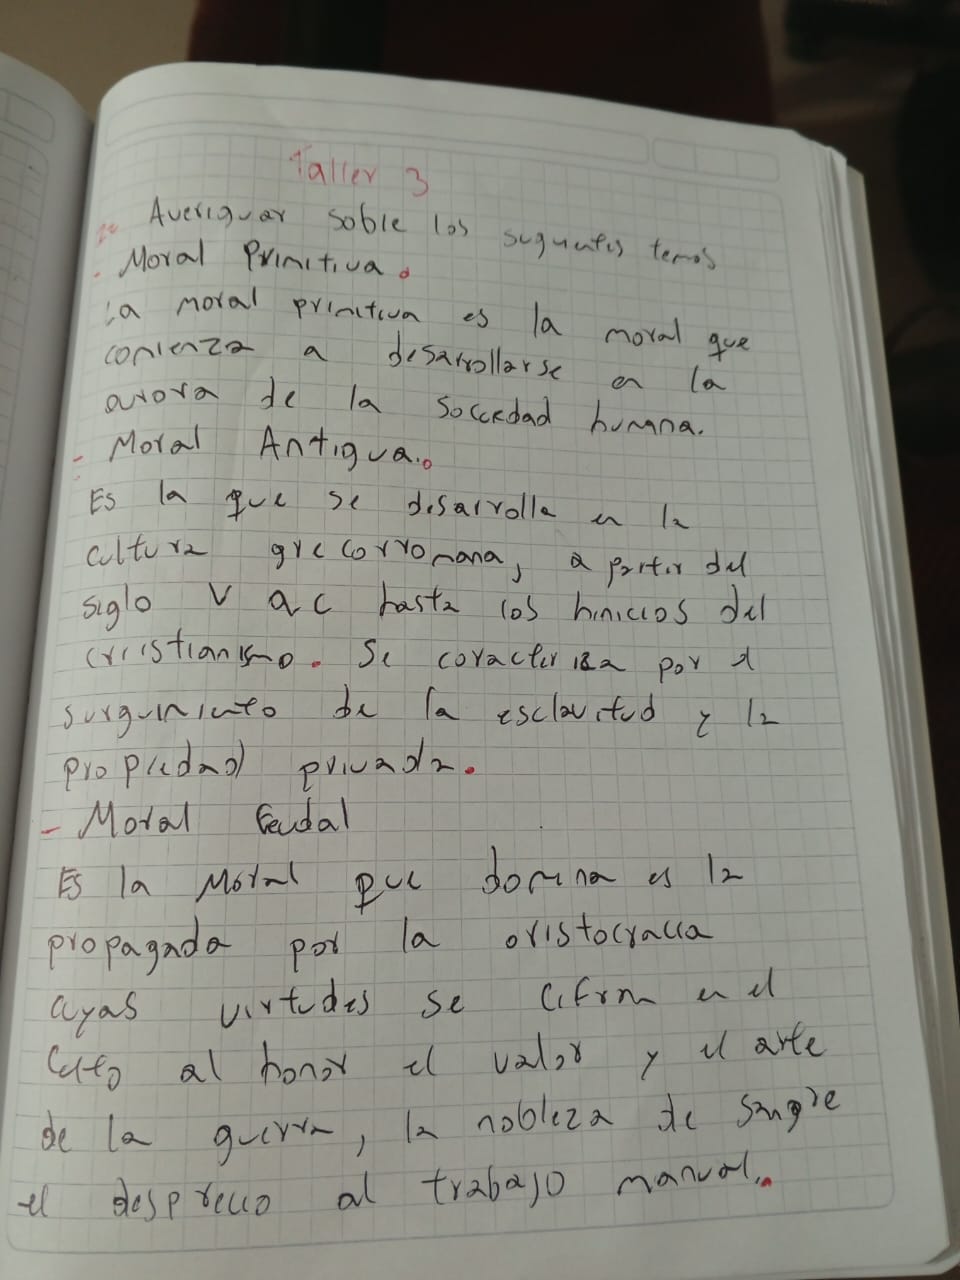 Taller 3
Averiguar sobre los siguientes temas
- Moral Primitiva.
La moral primitiva es la moral que
comienza a desarrollarse en la
aurora de la sociedad humana.
- Moral Antigua.
Es la que se desarrolla en la
cultura grecorromana, a partir del
siglo V a c hasta los hinicios del
cristianismo. Se caracteriza por el
surgimiento de la esclavitud y la
propiedad privada.
- Moral feudal
Es la Moral que domina es la
propagada por la aristocracia
cuyas virtudes se cifran en el
culto al honor el valor y el arte
de la guerra, la nobleza de sangre
el desprecio al trabajo manual.